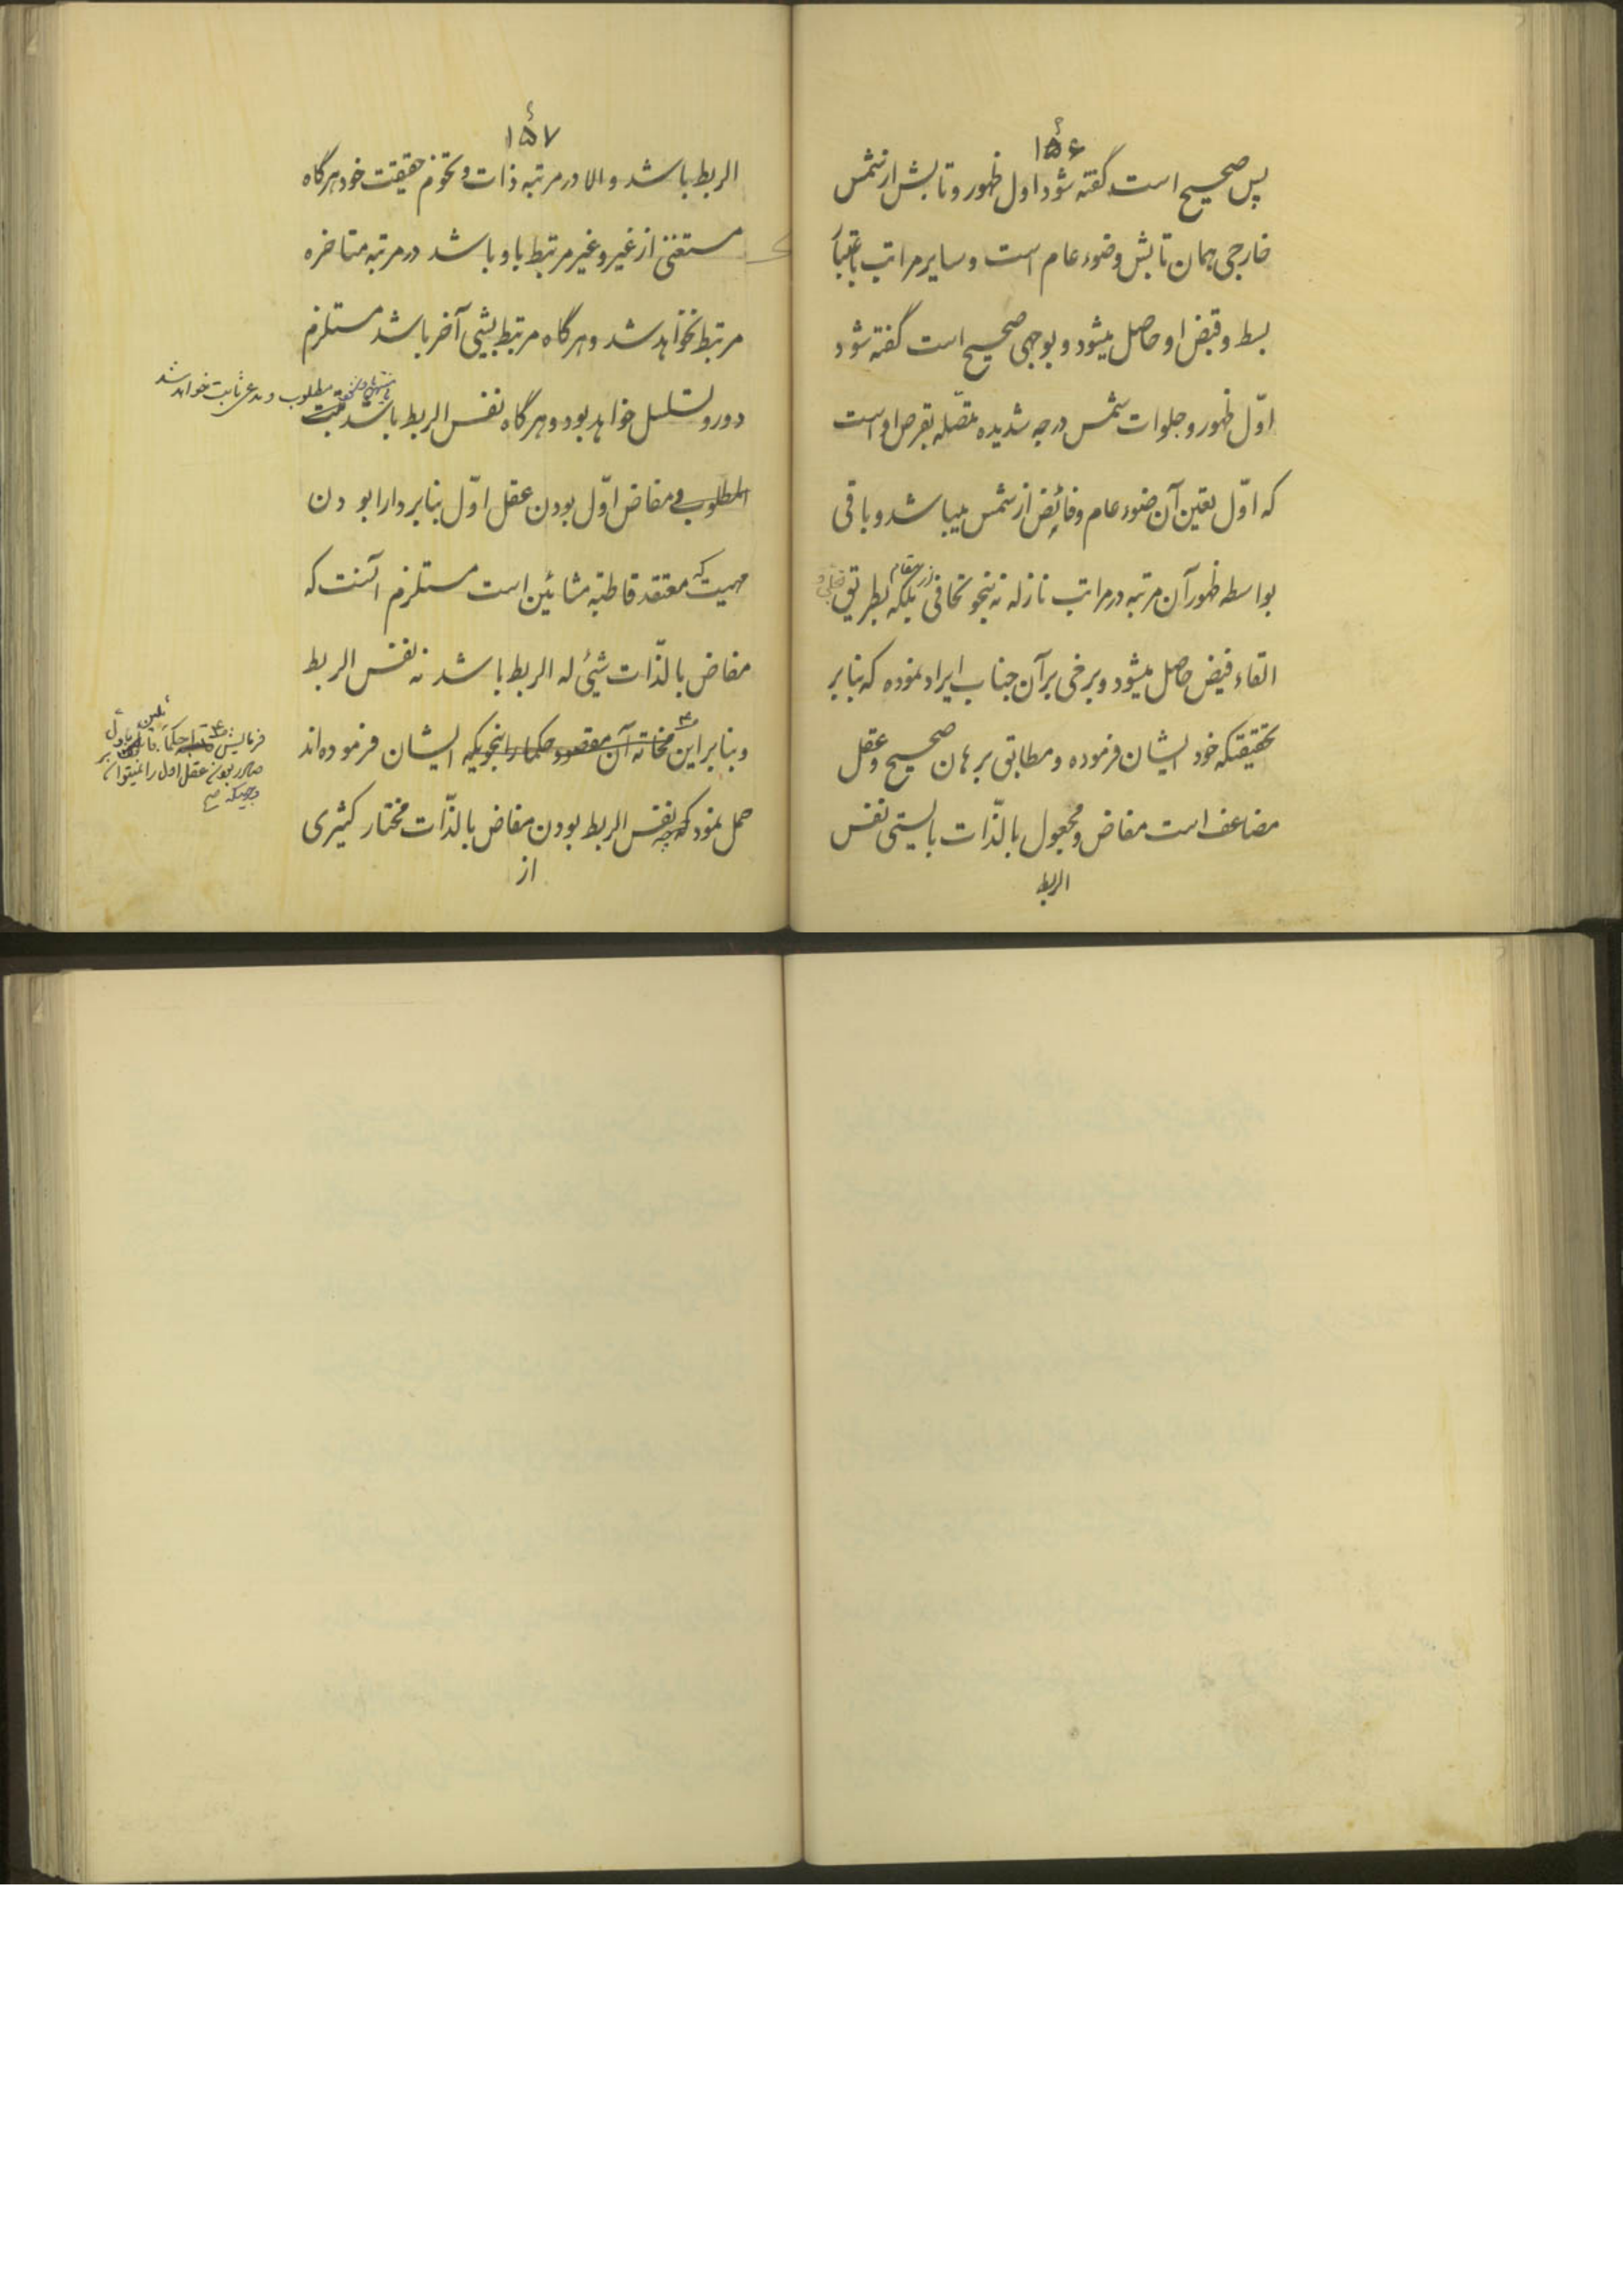 ۱۵۶
پس صحیح است گفته شود اول ظهور و تابش از شمس
خارجی همان تابش وضوء عام است و سایر مراتب باعتبار
بسط و قبض او حاصل میشود و بوجهی صحیح است گفته شود
اوّل ظهور و جلوات شمس درجه شدیده متصّله بقرص او است
که اوّل تعین آن ضوء عام و فائض از شمس میباشد و باقی
بواسطه ظهور آن مرتبه در مراتب نازله نه بنحو تجافی از مقام بلکه بطریق
القاء فیض حاصل میشود و برخی بر آن جناب ایراد نموده که بنابر
تحقیقیکه خود ایشان فرموده و مطابق برهان صحیح و عقل
مضاعف است مفاض و مجعول بالذّات بایستی نفس
الربط
۱۵۷
الربط باشد و الا در مرتبه ذات و تجوهر حقیقت خود هرگاه
مستغنی از غیر و غیر مرتبط باو باشد در مرتبه متاخره
مرتبط نخواهد شد و هرگاه مرتبط بشیئی آخر باشد مستلزم
دور و تسلسل خواهد بود و هرگاه نفس الربط باشد ثبت
مطلوب و مدعی ثابت خواهد شد
المطلوب و مفاض اوّل بودن عقل اوّل بنابر دارا بودن
مهیت که معتقد قاطبه مشائین است مستلزم آنست که
مفاض بالذّات شیئی له الربط باشد نه نفس الربط
و بنابراین آن مقصود حکما را بنحویکه ایشان فرموده‌اند
فرمایش حکما
صادر بودن عقل اول را نمیتوان
بوجهیکه صح
حمل نمود که چه نفس الربط بودن مفاض بالذّات مختار کثیری
از